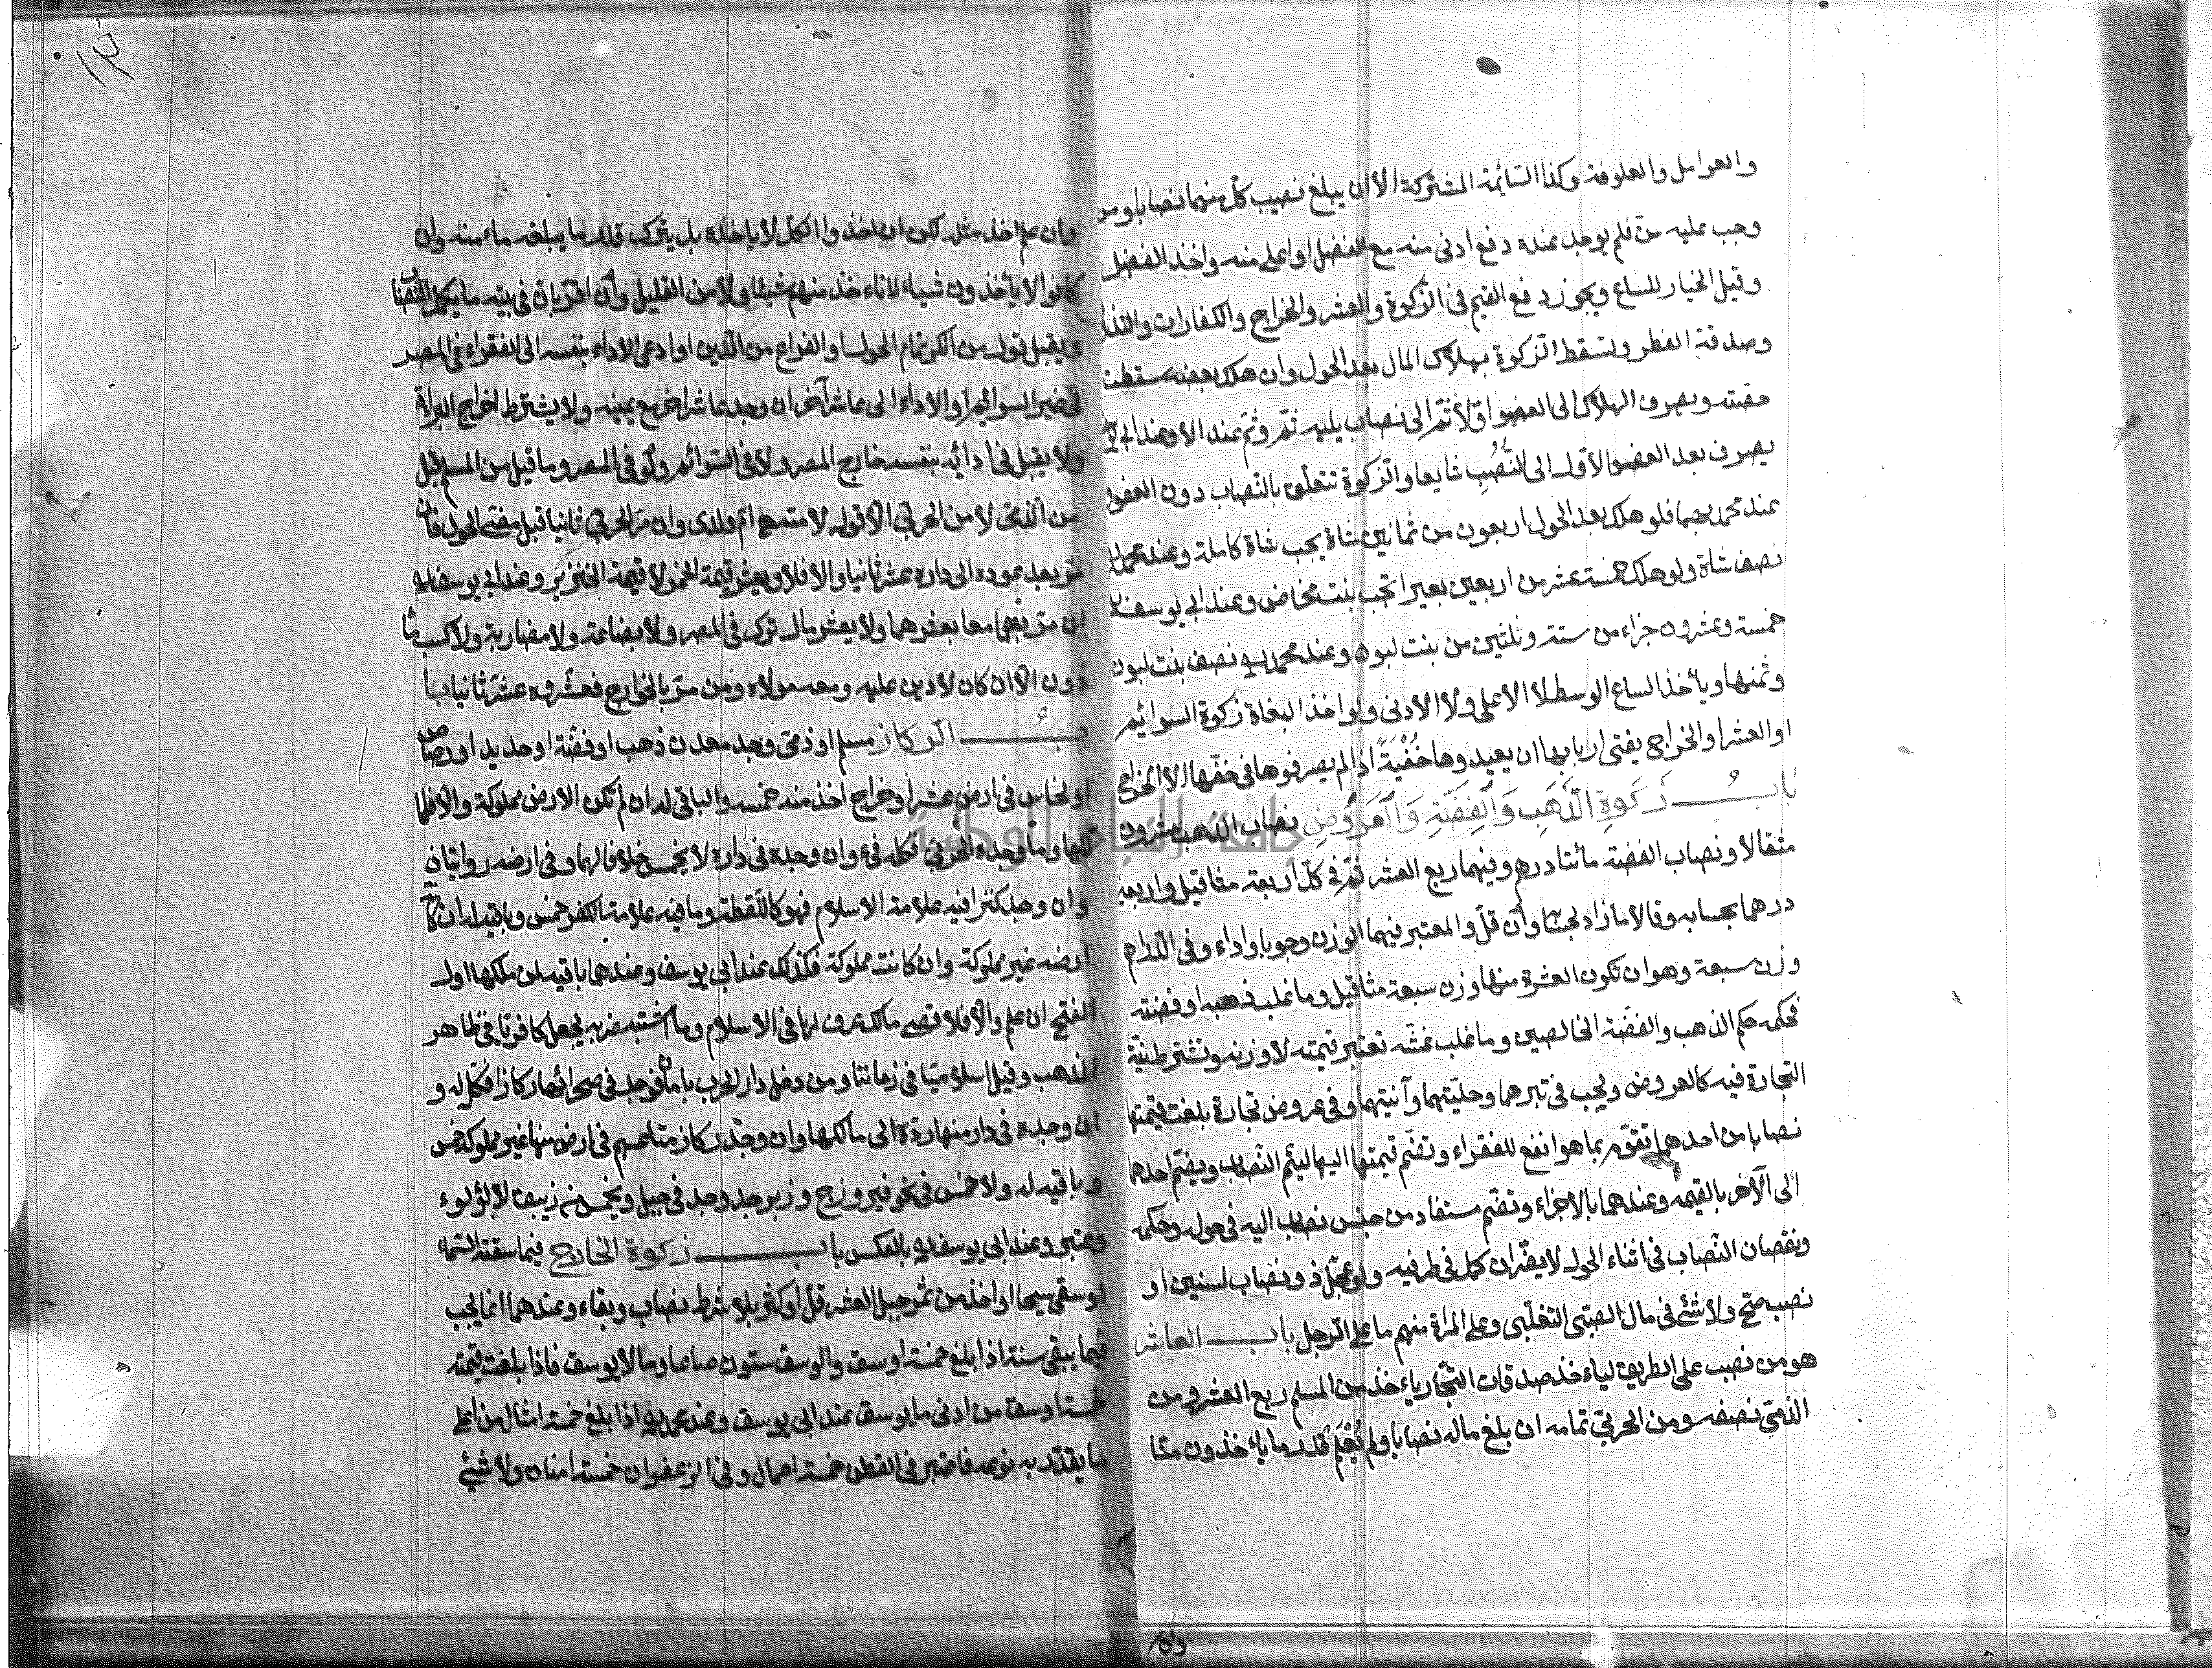 والعوامل والعلوفة وكذا السائمة المشتركة الا ان يبلغ نصيب كل منهما نصابا ومن
وجب عليه سن فلم يوجد عنده دفع ادنى منه مع الفضل او اعلى منه واخذ الفضل
وقيل الخيار للساع ويجوز دفع القيم فى الزكوة والعشر والخراج والكفارات والنذر
وصدقة الفطر وتسقط الزكوة بهلاك المال بعد الحول وان هلك بعضه سقطت
حصته ويصرف الهلاك الى العفو اوّلا ثمّ الى نصاب يليه ثمّ وثمّ عند الا وعند ابى
يصرف بعد العفو الاول الى النُّصُبِ شايعا والزكوة تتعلق بالنصاب دون العفو
عند محمد بهما فلو هلك بعد الحول اربعون من ثمانين شاة يجب شاة كاملة وعند محمد
نصف شاة ولو هلك خمسة عشر من اربعين بعيرا تجب بنت مخاض وعند ابى يوسف
خمسة وعشرون جزاء من ستة وثلثين من بنت لبون وعند محمد نصف بنت لبون
وثمنها ويأخذ الساع الوسط لا الاعلى ولا الادنى ولو اخذ البغاة زكوة السوائم
او العشر او الخراج يفتى اربابها ان يعيدوها خُفْيَةً اذا لم يصرفوها فى حقها الا الخراج
بابُ زَكوةِ الذَّهَبِ وَالفِضَّةِ وَالعَرُوضِ نصاب الذهب عشرون
مثقالا ونصاب الفضة مائتا درهم وفيهما ربع العشر ثمّ فى كل اربعة مثاقيل واربعين
درهما بحسابه وقالا ما زاد بحسابه وان قلّ والمعتبر فيهما الوزن وجوبا واداء وفى الدراهم
وزن سبعة وهو ان تكون العشرة منها وزن سبعة مثاقيل وما غلب ذهبه او فضته
فحكمه حكم الذهب والفضة الخالصين وما غلب غشّه تعتبر قيمته لا وزنه وتشترط نيّة
التجارة فيه كالعروض ويجب فى تبرهما وحليّتهما وآنيتهما وفى عروض تجارة بلغت قيمتها
نصابا من احدهما تقوّم بما هو انفع للفقراء وتضم قيمتها اليهما ليتم النصاب ويضم احدهما
الى الآخر بالقيمه وعندهما بالاجزاء وتضم مستفاد من جنس نصاب اليه فى حوله وحكمه
ونقصان النصاب فى اثناء الحول لا يضر ان كمل فى طرفيه ولو عجّل ذو نصاب لسنين او
نصب صح ولا شئ فى مال الصبى التغلبى وعلى المراة منهم ما على الرجل باب العاشر
هو من نصب على الطريق لياءخذ صدقات التجار ياءخذ من المسلم ربع العشر ومن
الذمى نصفه ومن الحربى تمامه ان بلغ ماله نصابا ولم يُعْلَمْ قدر ما ياءخذون منّا
وان علم اخذ مثله لكن ان اخذوا الكل لا ياخذه بل يترك قدر ما يبلغه ماءمنه وان
كانوا لا يأخذون شيئا لا ناءخذ منهم شيئا ولا من القليل وان اقر بان فى بيته ما يكمل النصاب
ويقبل قول من انكر تمام الحول او الفراغ من الدين او ادعى الاداء بنفسه الى الفقراء فى المصر
فى غير السوائم او الاداء الى عاشر آخر ان وجد عاشر اخر مع يمينه ولا يشترط اخراج البراة
ولا يقبل فى ادائه بنفسه خارج المصر ولا فى السوائم ولو فى المصر وما قبل من المسلم قبل
من الذمى لا من الحربى الا قوله لامته هى امّ ولدى وان مر الحربى ثانيا قبل مضى الحول فان
مر بعد عوده الى داره عشر ثانيا والا فلا ويعشر قيمة الخمر لا قيمة الخنزير وعند ابى يوسف
ان مر بهما معا يعشرهما ولا يعشر مال ترك فى المصر ولا بضاعة ولا مضاربة ولا كسب مأ
ذون الا ان كان لا دين عليه ومعه مولاه ومن مرّ بالخوارج فعشروه عشر ثانيا با
بُ الركاز مسلم او ذمى وجد معدن ذهب او فضة او حديد او رصاص
او نحاس فى ارض عشر او خراج اخذ منه خمسه والباقى له ان لم تكن الارض مملوكة والا فلما
لكها وما وجده الحربى فكله فىء وان وجده فى داره لا يخمس خلافا لهما وفى ارضه روايتان
وان وجد كنزا فيه علامة الاسلام فهو كاللقطة وما فيه علامة الكفر خمس وباقيه له ان كانت
ارضه غير مملوكة وان كانت مملوكة فكذلك عند ابى يوسف وعندهما باقيه لمن ملكها اول
الفتح ان علم والا فلاقصى مالك عرف لها فى الاسلام وما اشتبه ضربه يجعل كافريّا فى ظاهر
المذهب وقيل اسلاميّا فى زماننا ومن دخل دار الحرب بامان فوجد فى صحرائها ركازا فكله له و
ان وجده فى دار منها ردّه الى مالكها وان وجد ركاز متاعهم فى ارض منها غير مملوكة خمس
وباقيه له ولا خمس فى نحو فيروزج وزبرجد وجد فى جبل ويخمس زيبق لا لؤلوء
وعنبر وعند ابى يوسف بالعكس باب زكوة الخارج فيما سقته السماء
او سقى سيحا او اخذ من ثمر جبل العشر قلّ او كثر بلا شرط نصاب وبقاء وعندهما انما يجب
فيما يبقى سنة اذا بلغ خمسة اوسق والوسق ستون صاعا وما لا يوسق فاذا بلغت قيمته
خمسة اوسق من ادنى ما يوسق عند ابى يوسف وعند محمد اذا بلغ خمسة امثال من اعلى
ما يقدّر به نوعه فاعتبر فى القطن خمسة احمال وفى الزعفران خمسة امنان ولا شئ